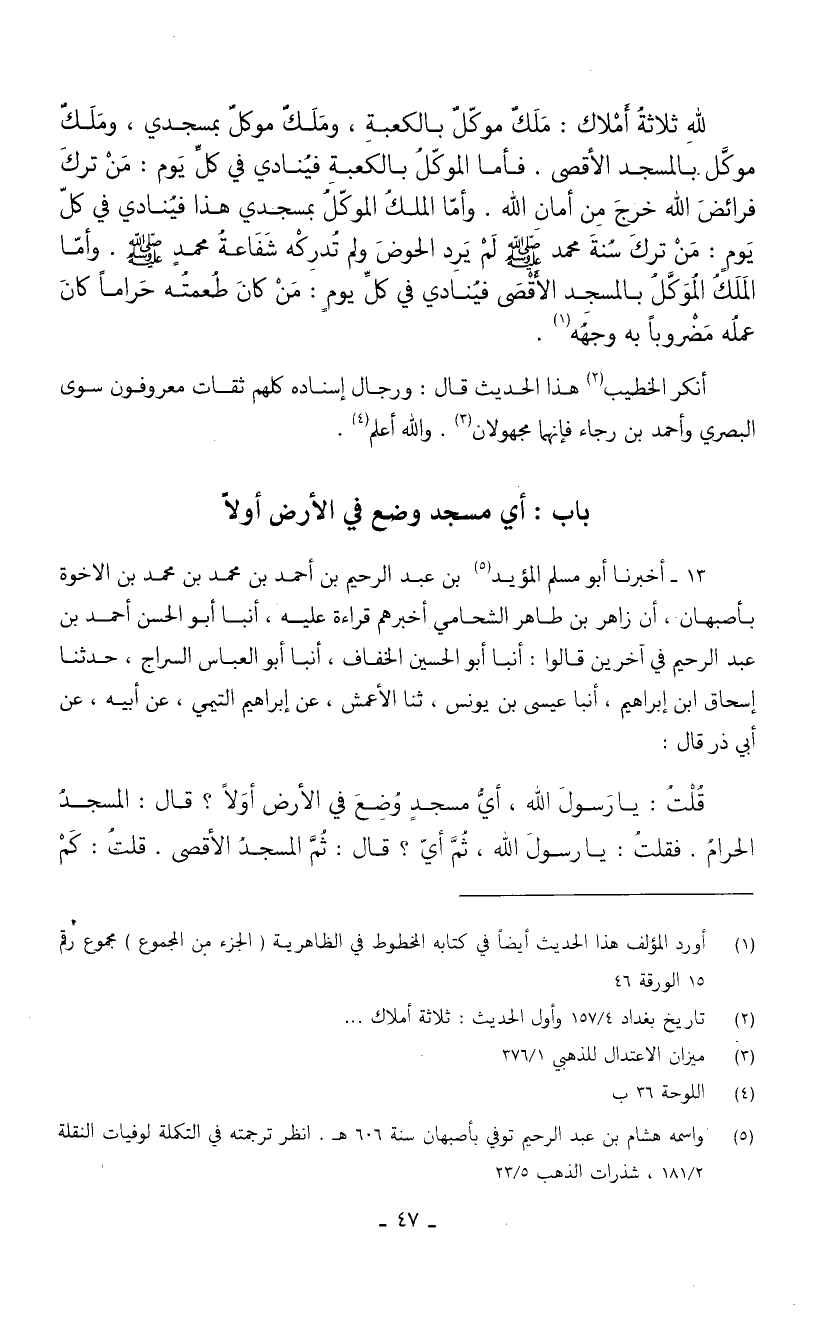 لله ثلاثةُ أَمْلاك : مَلَكٌ موكّلٌ بالكعبة ، ومَلَكٌ موكلٌ بمسجدي ، ومَلَكٌ
موكَّل بالمسجد الأقصى . فأما الموكّلُ بالكعبة فيُنادي في كلِّ يَوم : مَنْ تركَ
فرائضَ الله خرجَ مِن أمان الله . وأمّا الملكُ الموكّلُ بمسجدي هذا فيُنادي في كلّ
يَوم : مَنْ تركَ سُنةَ محمد ﷺ لَمْ يَرِد الحوضَ ولم تُدركْه شَفَاعةُ محمدٍ ﷺ . وأمّا
المَلَكُ المُوَكَّلُ بالمسجد الأقْصَى فيُنادي في كلِّ يومٍ : مَنْ كانَ طُعمتُه حَراماً كانَ
عملُه مَضْروباً به وجهُه(١) .
أنكر الخطيب(٢) هذا الحديث قال : ورجال إسناده كلهم ثقات معروفون سوى
البصري وأحمد بن رجاء فإنهما مجهولان(٣) . والله أعلم(٤) .
باب : أي مسجد وضع في الأرض أولاً
١٣ ـ أخبرنا أبو مسلم المؤيد(٥) بن عبد الرحيم بن أحمد بن محمد بن محمد بن الاخوة
بأصبهان ، أن زاهر بن طاهر الشحامي أخبرهم قراءة عليه ، أنبا أبو الحسن أحمد بن
عبد الرحيم في آخرين قالوا : أنبا أبو الحسين الخفاف ، أنبا أبو العباس السراج ، حدثنا
إسحاق ابن إبراهيم ، أنبا عيسى بن يونس ، ثنا الأعمش ، عن إبراهيم التيمي ، عن أبيه ، عن
أبي ذر قال :
قُلْتُ : يارَسولَ الله ، أيُّ مسجدٍ وُضِعَ في الأرض أوَلاً ؟ قال : المسجدُ
الحرامُ . فقلتُ : يارسولَ الله ، ثُمَّ أيّ ؟ قال : ثُمَّ المسجدُ الأقصى . قلتُ : كَمْ
(١) أورد المؤلف هذا الحديث أيضاً في كتابه المخطوط في الظاهرية ( الجزء من المجموع ) مجموع رقم
١٥ الورقة ٤٦
(٢) تاريخ بغداد ١٥٧/٤ وأول الحديث : ثلاثة أملاك ...
(٣) ميزان الاعتدال للذهبي ٣٧٦/١
(٤) اللوحة ٣٦ ب
(٥) واسمه هشام بن عبد الرحيم توفي بأصبهان سنة ٦٠٦ هـ . انظر ترجمته في التكملة لوفيات النقلة
١٨١/٢ ، شذرات الذهب ٢٣/٥
ـ ٤٧ ـ